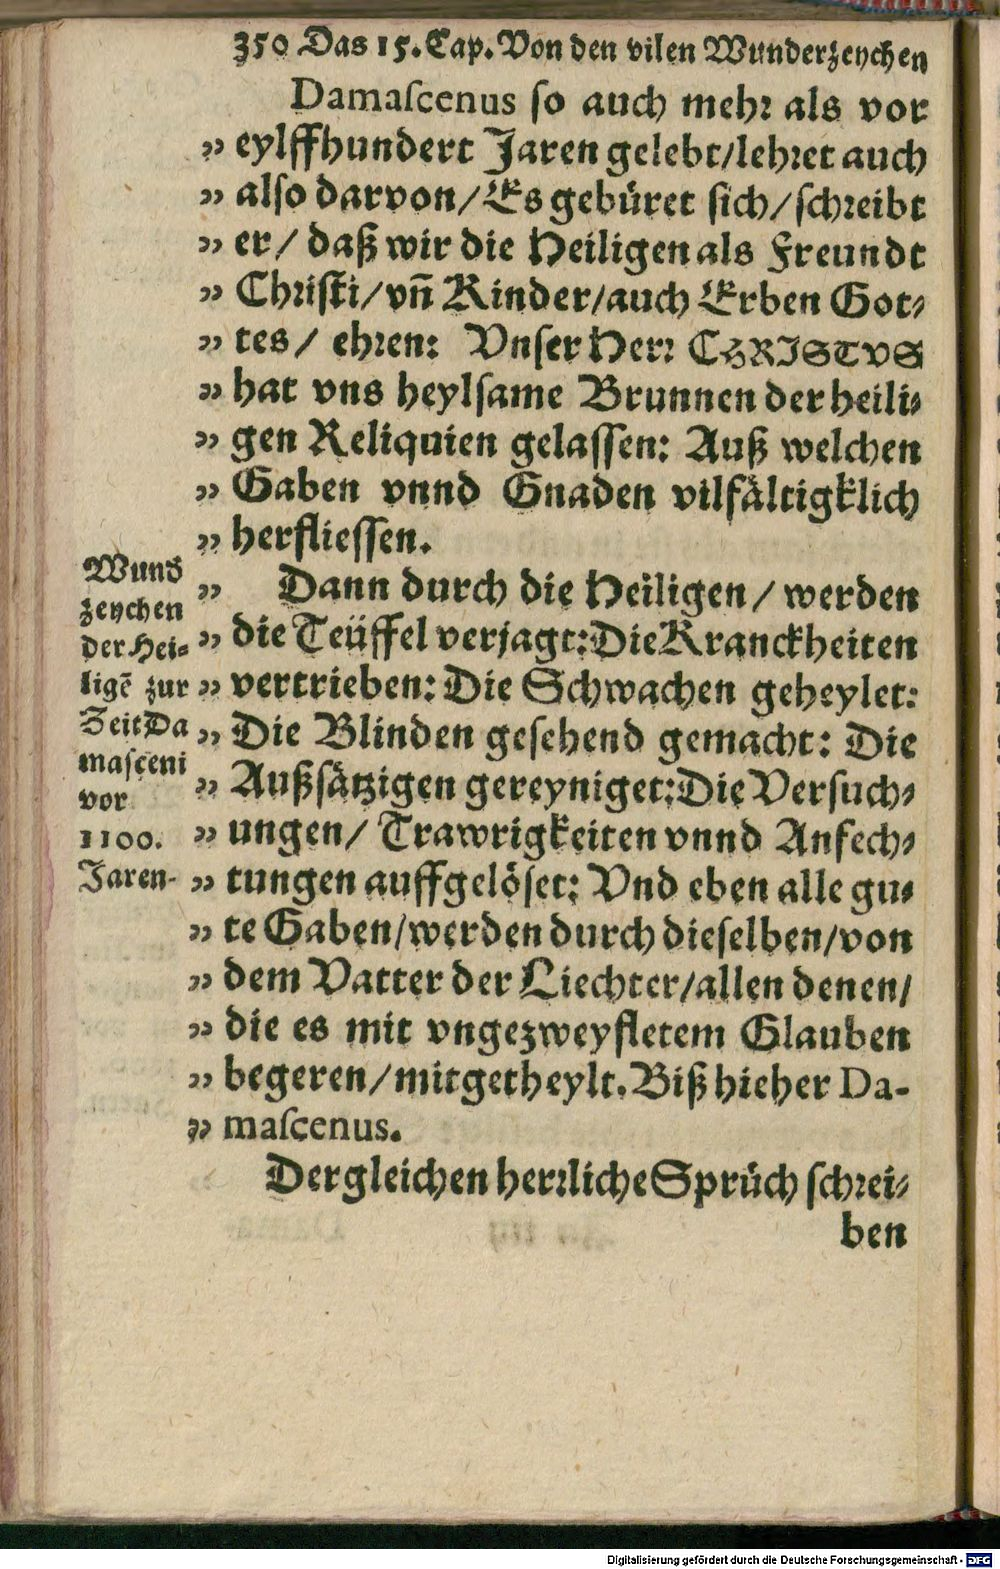 350 Das 15. Cap. Von den vilen Wunderzeychen
Damaſcenus ſo auch mehꝛ als vor
„ eylffhundert Jaren gelebt/lehꝛet auch
„ alſo darvon/ Es gebüret ſich/ ſchꝛeibt
„ er/ daß wir die Heiligen als Freundt
„ Chꝛiſti/ vn̄ Kinder/auch Erben Got⸗
„ tes/ ehꝛen: Vnſer Herꝛ CHRISTVS
„ hat vns heylſame Brunnen der heili⸗
„ gen Reliquien gelaſſen: Auß welchen
„ Gaben vnnd Gnaden vilfältigklich
„ herflieſſen.
„ Dann durch die Heiligen/ werden
„ die Teüffel verjagt: Die Kranckheiten
„ vertrieben: Die Schwachen geheylet:
„ Die Blinden geſehend gemacht: Die
„ Außſätzigen gereyniget: Die Verſuch⸗
„ ungen/ Trawrigkeiten vnnd Anfech⸗
„ tungen auffgelöſet: Vnd eben alle gu⸗
„ te Gaben/werden durch dieſelben/von
„ dem Vatter der Liechter/allen denen/
„ die es mit vngezweyfletem Glauben
„ begeren/ mitgetheylt. Biß hieher Da-
„ maſcenus.
Dergleichen herꝛliche Sprüch ſchꝛei⸗
ben
Wund
zeychen
der Hei⸗
ligē zur
Zeit Da
maſceni
vor
1100.
Jaren.
Digitalisierung gefördert durch die Deutsche Forschungsgemeinschaft - DFG